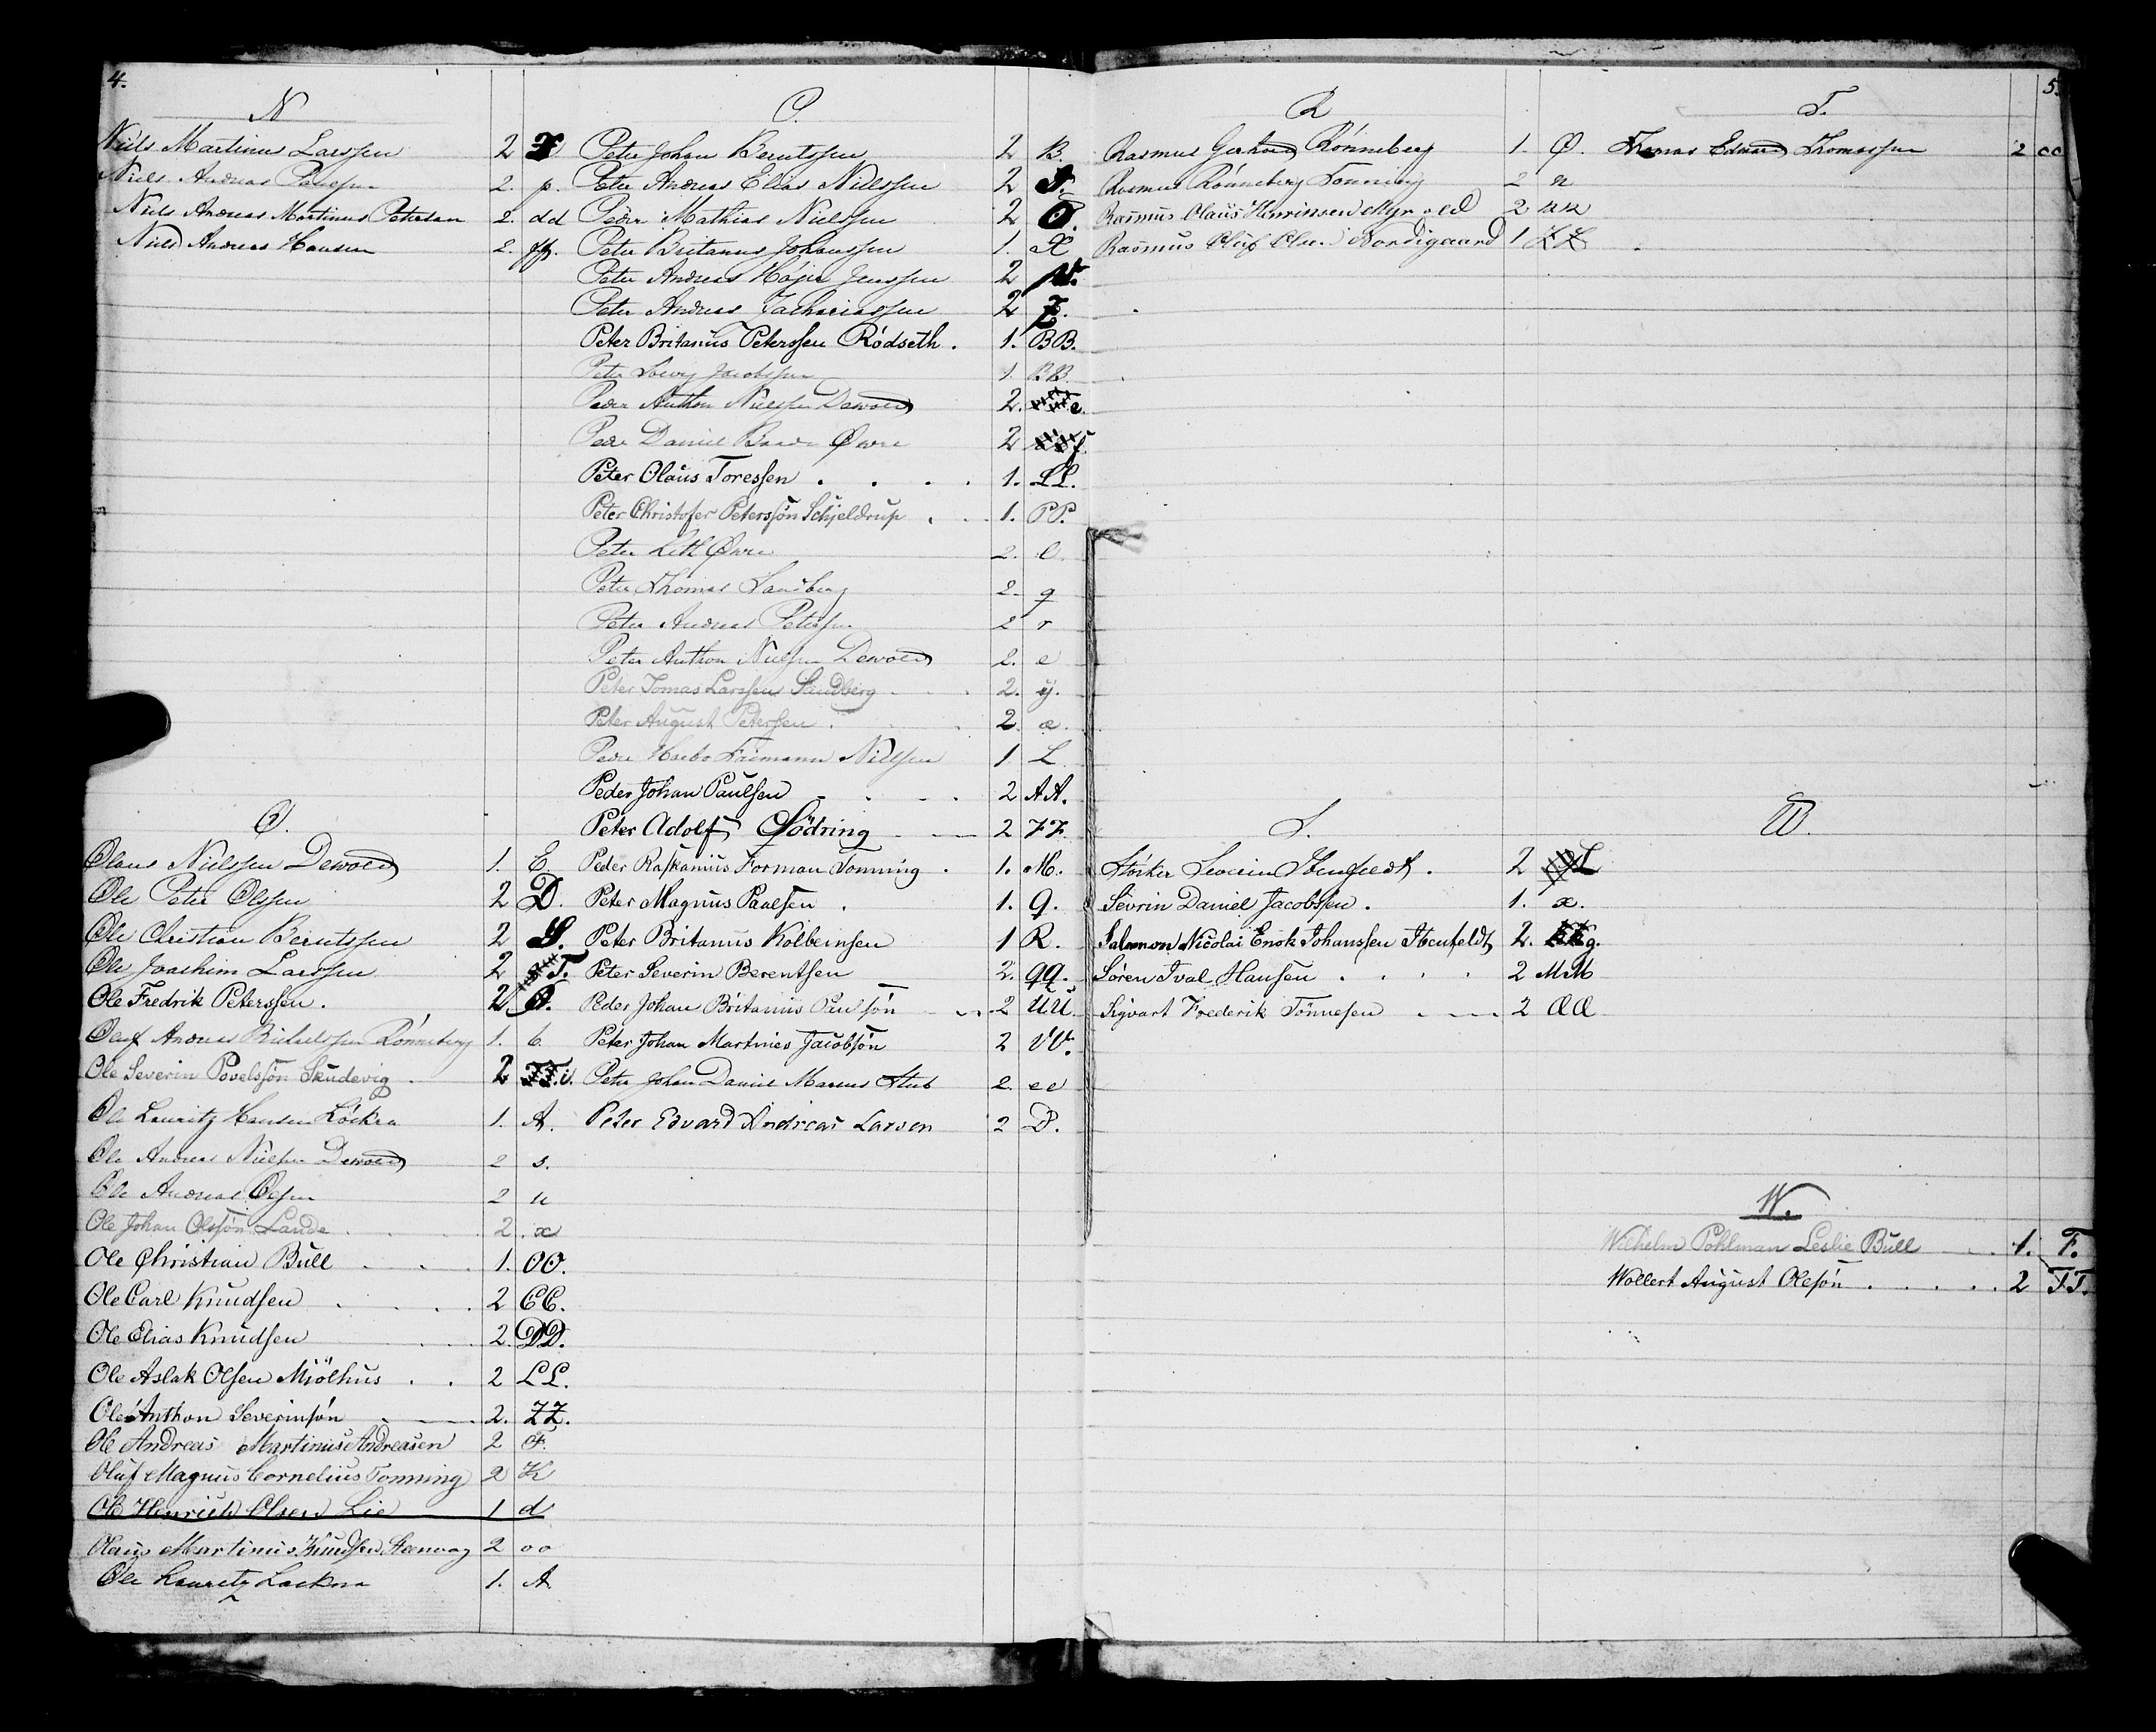 4.
N
Niels Martinus Larssen 2
Niels Andreas 2. p.
Niels Andreas Martinus Petersen 2. dd
Niels Andreas Hansen 2. pp.
O.
Olaus Nielssen Dewold 1. E.
Ole Peter Olssen 2 D.
Ole Christian Berntssen 2 S.
Ole Joachim Larssen 2 T.
Ole Fredrik Peterssen. 2
Oluf Andreas Rönneberg 1. b.
Ole Severin Povelsön Skudevig. 2 i.
Ole Lauritz Hansen Löckra 1. A.
Ole Andreas Nielsen Dewold 2 s.
Ole Andreas Olsen 2 u
Ole Johan Olssön Lande 2. x
Ole Christian Bull 1. OO.
Ole Carl Knudsen 2 CC.
Ole Elias Knudsen 2. DD.
Ole Aslak Olsen Miölhus 2 LL.
Ole Anthon Severinsön 2. ZZ.
Ole Andreas Martinus Andreasen 2 F.
Oluf Magnus Cornelius Tonning 2 K
Ole Henrich Olsen Lie 1 d
Olaus Martinus Knudsen Steenvag 2 oo
Ole Lauritz Lackra 1. A
P.
Peter Johan Berntssen 2 B.
Peter Andreas Elias Nielssen 2 S.
Peder Mathias Nielssen 2 O.
Peter Britanus Johanssen 1. X
Peter Andreas Höyer Jenssen 2
Peter Andreas Zachariassen 2 Z.
Peter Britanus Peterssen Rödseth. 1. BB.
Peter Jacobssen 1. BB.
Peder Anthon Nielssen Dewold 2. e.
Peder Daniel Øwre 2 f.
Peter Olaus Toressen 1. LL.
Peter Christofer Peterssön Schjeldrup 1. PP.
Peter Øwre 2. O.
Peter Thomas Sandberg 2. q
Peter Andreas Peterssen 2 r
Peter Anthon Nielsen Dewold 2. e
Peter Tomas Larssen Sandberg 2. y.
Peter August Peterssen. 2 æ.
Peder Nielssen 1 L
Peder Johan Paulsen 2 AA.
Peter Adolf Södring 2 ZZ
Peder Raskanius Forman Tonning. 1. M.
Peter Magnus Paulsen. 1. Q.
Peter Britanus Kolbeinsen 1 R.
Peter Severin Berentsen 2. qq.
Peder Johan Britanius Paulsön 2 UU
Peter Johan Martines Jacobsön 2 VV.
Peter Johan Daniel Marcus Stub 2. ee
Peter Edvard Andreas Larsen 2 P.
R
Rasmus Gerhard Rönneberg 1. Ø.
Rasmus Rönneberg Tonning 2 n
Rasmus Olaus Henrinsen Myrvold 2 nn
Rasmus Oluf Nordigaard 1 ZZ
S.
Störker Severin Ibenfeldt. 2 L
Sevrin Daniel Jacobssen. 1. x.
Salomon Nicolai Enok Johanssen Ibenfeldt 2. g.
Sören Ival Hansen 2 MM
Sigvart Frederik Tönnesen 2 ÆÆ
5
T.
Thomas Edvard Thomassen 2 cc
U.
W.
Wilhelm Pohlman Leslie Bull 1. F.
Wollert August Olesön 2 TT.